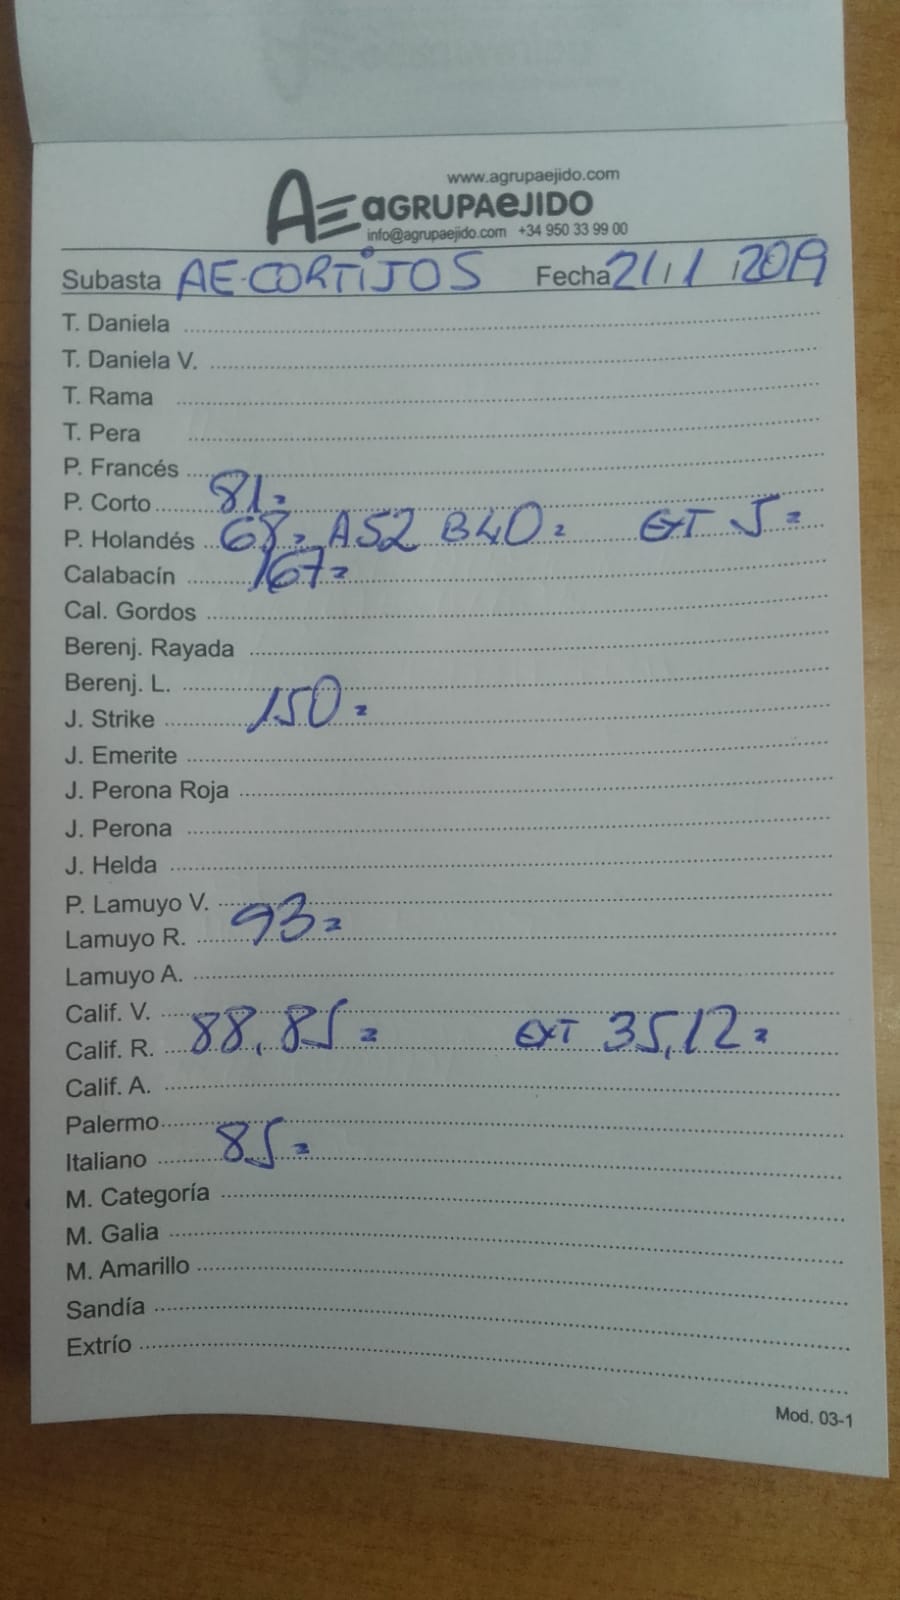 www.agrupaejido.com
AE aGRUPAeJIDO
info@agrupaejido.com +34 950 33 99 00
Subasta AE-CORTIJOS Fecha 21/1/2019
T. Daniela
T. Daniela V.
T. Rama
T. Pera
P. Francés
P. Corto 81=
P. Holandés 68= A52 B40= EXT 5=
Calabacín 167=
Cal. Gordos
Berenj. Rayada
Berenj. L.
J. Strike 150=
J. Emerite
J. Perona Roja
J. Perona
J. Helda
P. Lamuyo V.
Lamuyo R. 93=
Lamuyo A.
Calif. V.
Calif. R. 88,85= EXT 35,12=
Calif. A.
Palermo
Italiano 85=
M. Categoría
M. Galia
M. Amarillo
Sandía
Extrío
Mod. 03-1